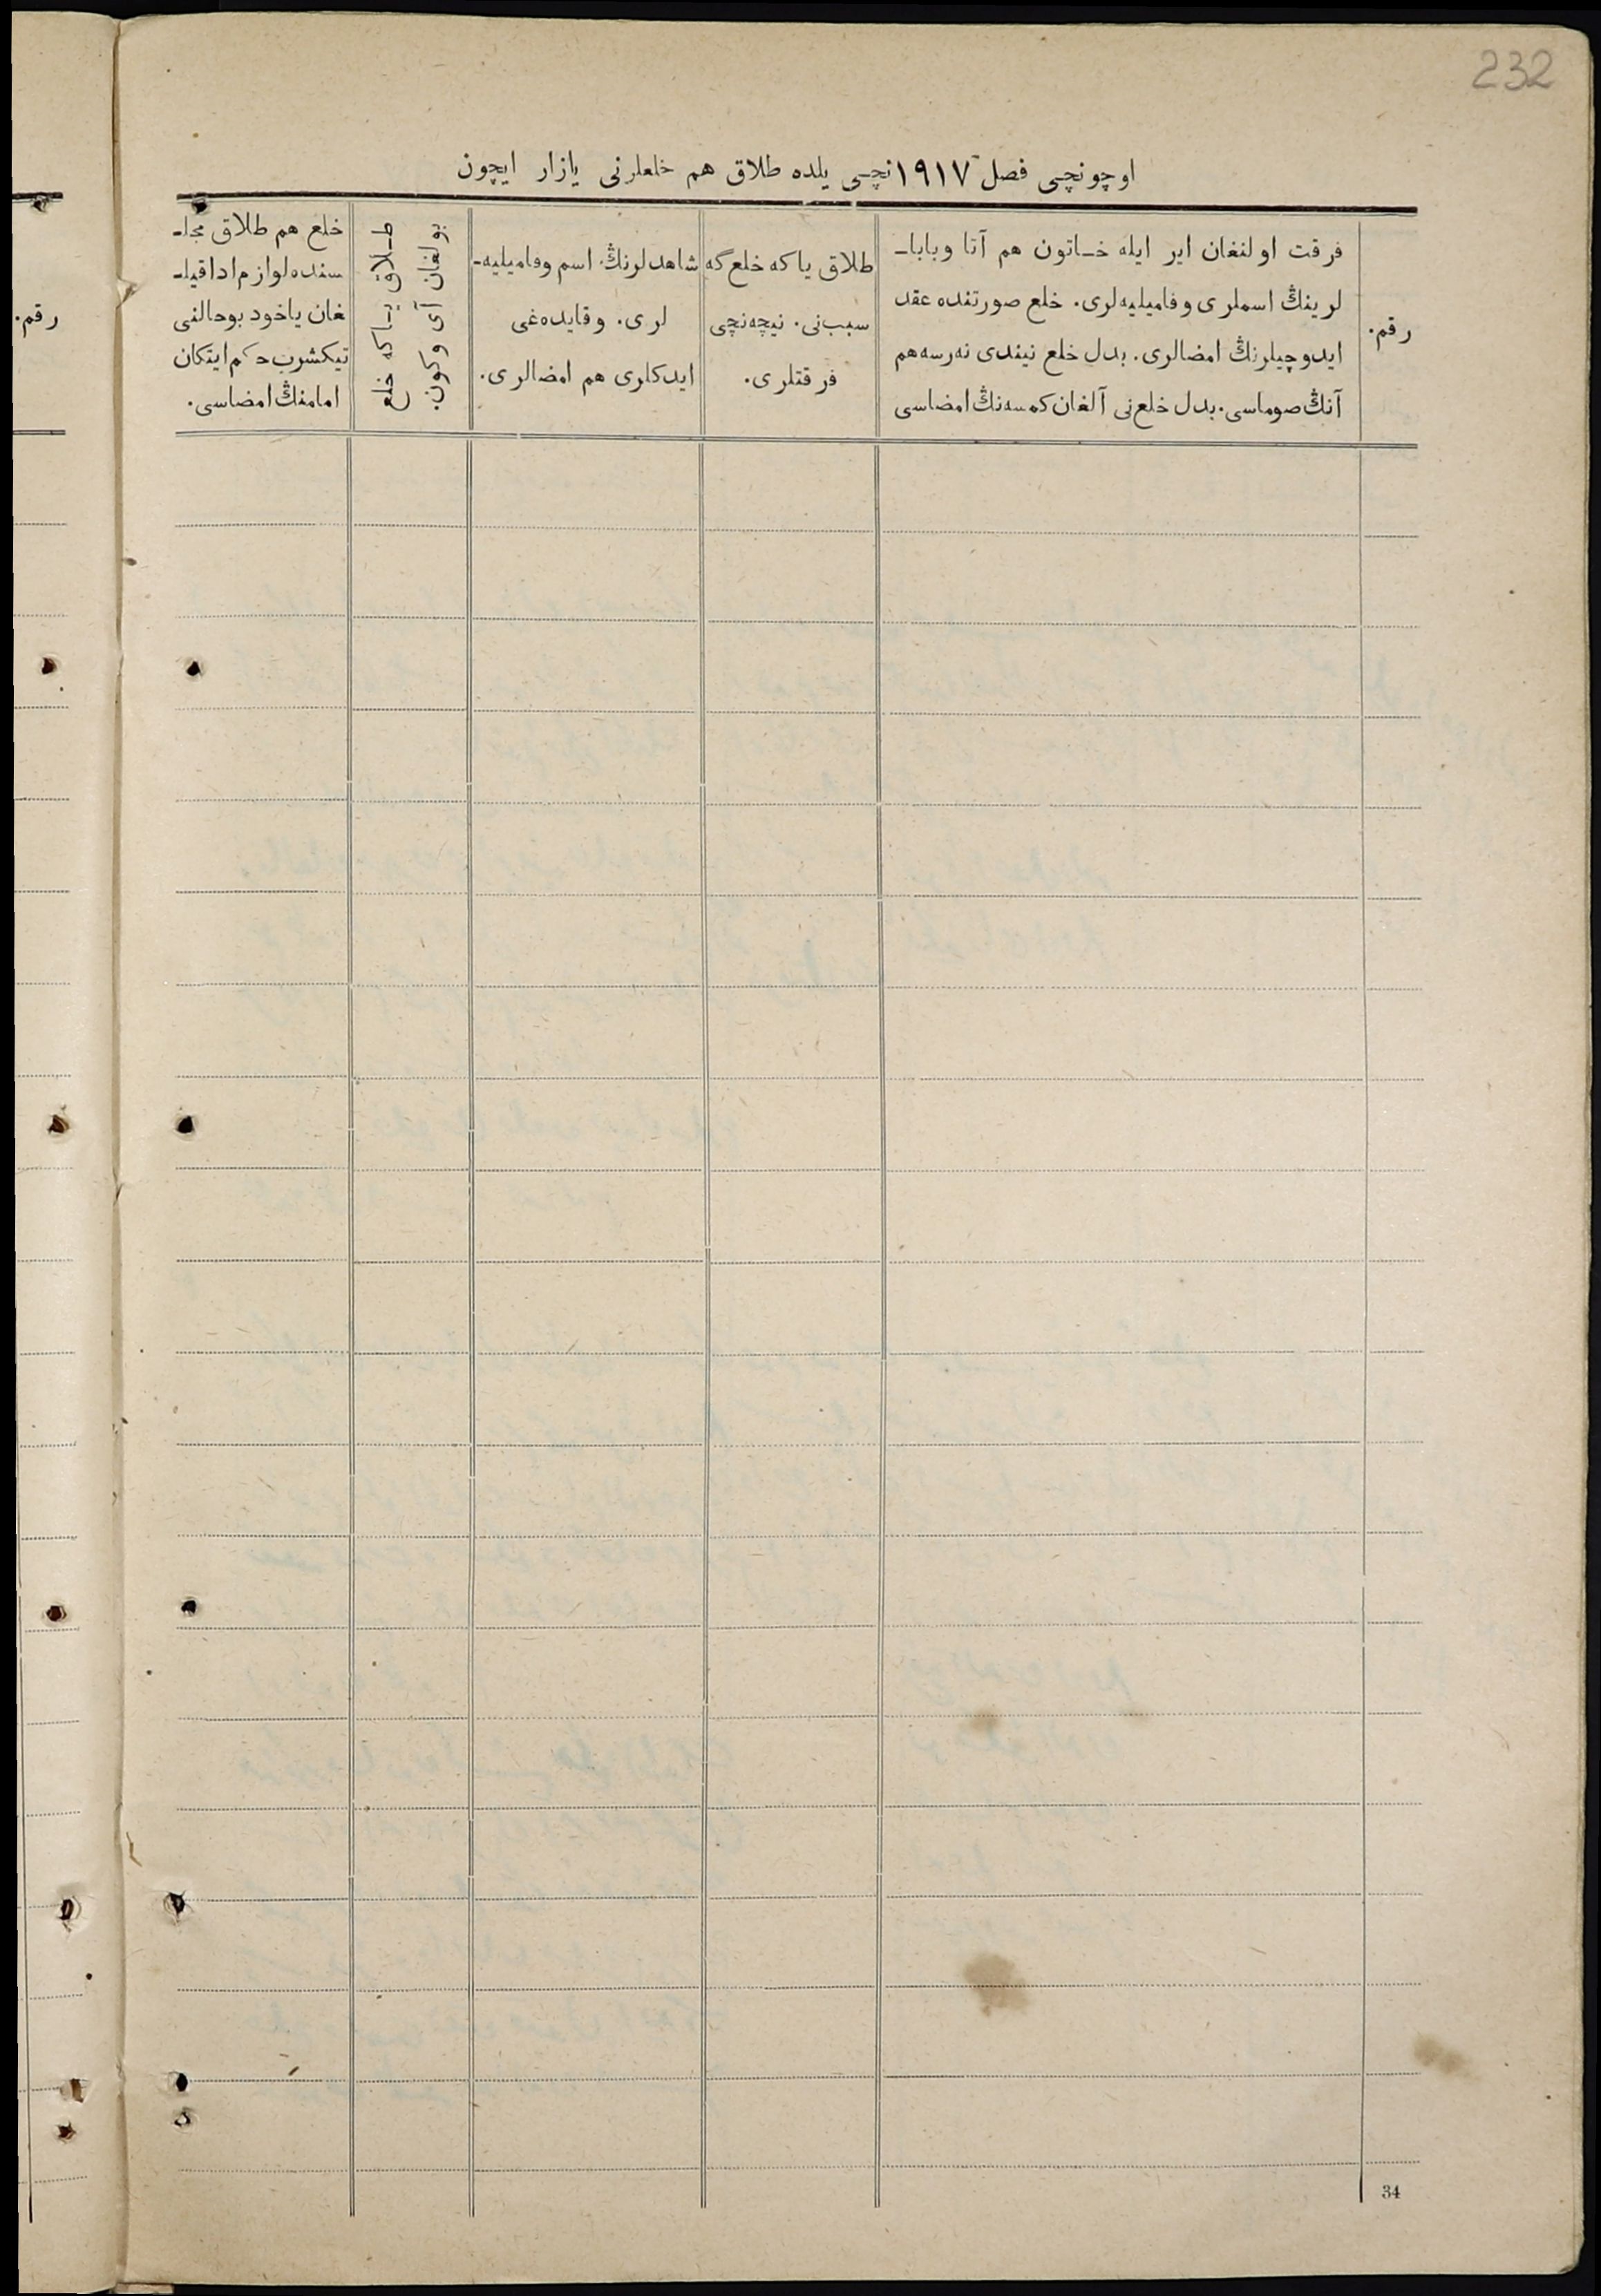 232
اوچونچی فصل ١٩١٧نچی یلده طلاق هم خلعلرنی یازار ایچون
رقم.
فرقت اولنغان ایر ایله خاتون هم آتا وبابا-
لرینڭ اسملری وفامیلیه‌لری. خلع صورتنده عقد
ایدوچیلرنڭ امضالری. بدل خلع نیندی نه‌رسه‌هم
آنڭ صوماسی. بدل خلع‌نی آلغان کمسه‌نڭ امضاسی
طلاق یاکه خلع‌گه
سبب‌نی. نیچه‌نچی
فرقتلری.
شاهدلرنڭ اسم وفامیلیه-
لری. وقایده‌غی
ایدکلری هم امضالری.
طلاق یاکه خلع
بولغان آی وکون.
خلع هم طلاق مجلـ
سنده‌لوازم اداقیلـ
غان یاخود بوحالنی
تیکشرب حکم ایتکان
امامنڭ امضاسی.
رقم.
34